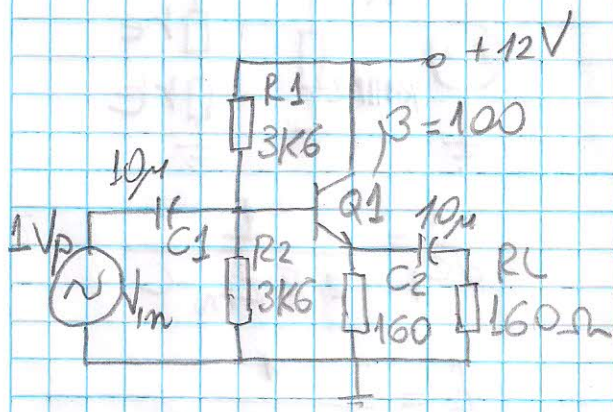 +12V
R1
3K6
β=100
10μ
Q1
10μ
1Vp
C1
R2
C2
RL
Vin
3K6
160
160Ω